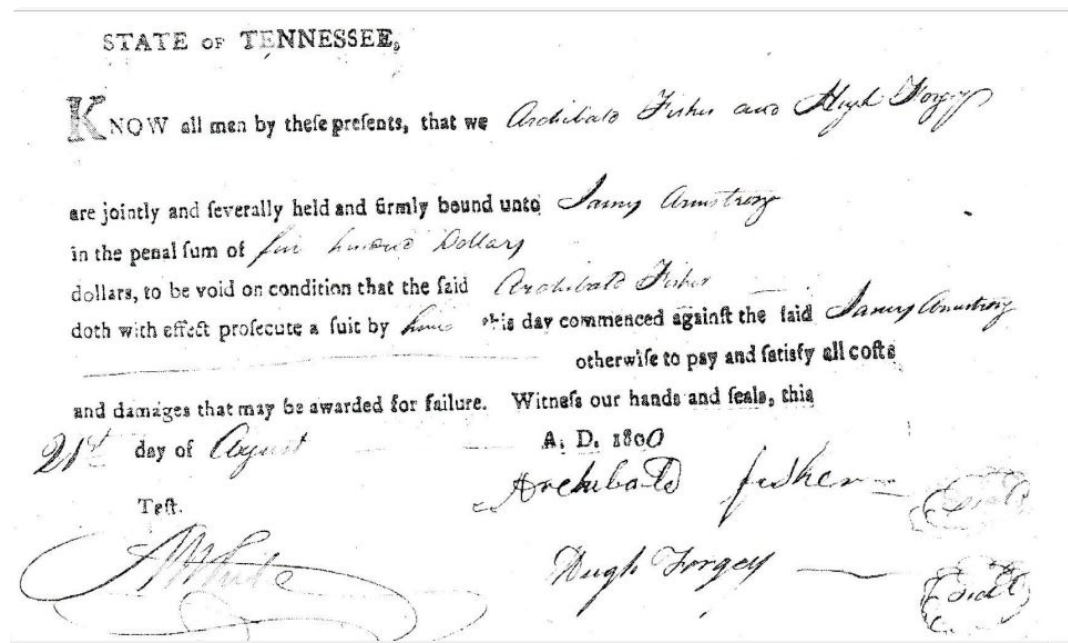 STATE OF TENNESSEE,
KNOW all men by theſe preſents, that we Archibald Fisher and Hugh Forgey
are jointly and ſeverally held and firmly bound unto James Armstrong
in the penal ſum of five hundred Dollars
dollars, to be void on condition that the ſaid Archibald Fisher
doth with effect proſecute a ſuit by him this day commenced againſt the ſaid James Armstrong
otherwiſe to pay and ſatisfy all coſts
and damages that may be awarded for failure. Witneſs our hands and ſeals, this
21st day of August A. D. 1800
Archibald fisher Seal
Teſt.
Hugh Forgey Seal